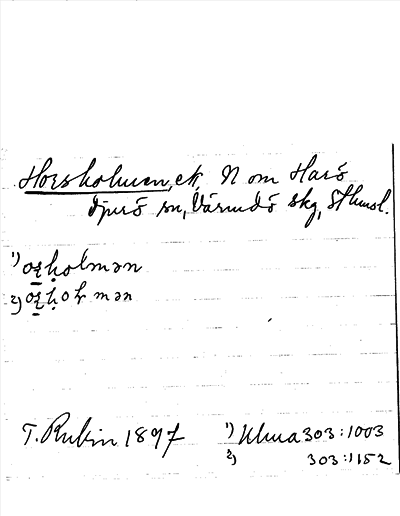 Horsholmen, ek, N om Harö
Djurö sn, Värmdö skg, Sthmsl.
1) oʂḥolmən
2) oʂḥolmən
T. Rubin 1897 1) Ulma 303:1003
2) 303:1152